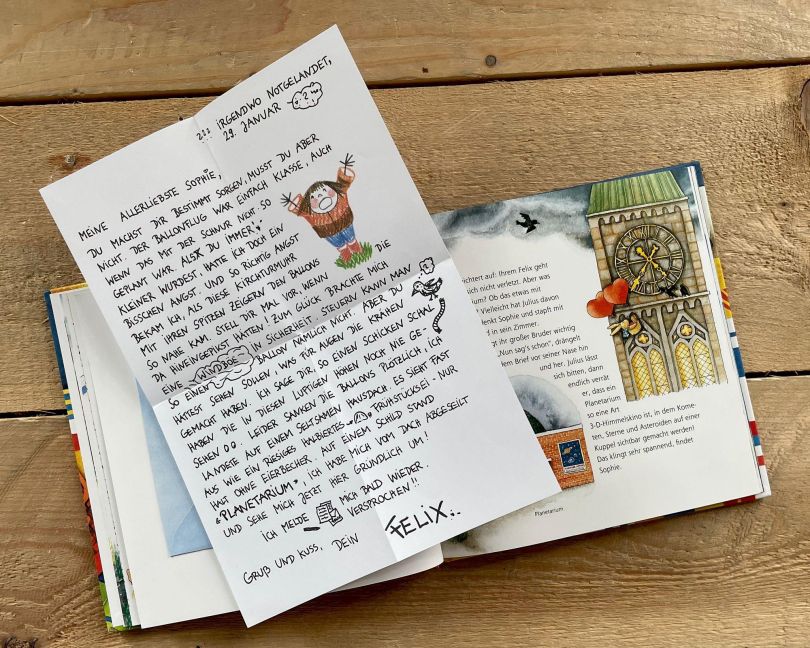 ??? IRGENDWO NOTGELANDET,
29. JANUAR ?
MEINE ALLERLIEBSTE SOPHIE,
DU MACHST DIR BESTIMMT SORGEN, MUSST DU ABER
NICHT. DER BALLONFLUG WAR EINFACH KLASSE, AUCH
WENN DAS MIT DER SCHNUR NICHT SO
GEPLANT WAR. ALS DU IMMER
KLEINER WURDEST, HATTE ICH DOCH EIN
BISSCHEN ANGST. UND SO RICHTIG ANGST
BEKAM ICH, ALS DIESE KIRCHTURMUHR
MIT IHREN SPITZEN ZEIGERN DEN BALLONS
SO NAHE KAM. STELL DIR MAL VOR, WENN DIE
DA HINEINGEPIKST HÄTTEN! ZUM GLÜCK BRACHTE MICH
EINE WINDBÖE IN SICHERHEIT. STEUERN KANN MAN
SO EINEN BALLON NÄMLICH NICHT. ABER DU
HÄTTEST SEHEN SOLLEN, WAS FÜR AUGEN DIE KRÄHEN
GEMACHT HABEN. ICH SAGE DIR, SO EINEN SCHICKEN SCHAL
HABEN DIE IN DIESEN LUFTIGEN HÖHEN NOCH NIE GE-
SEHEN. LEIDER SANKEN DIE BALLONS PLÖTZLICH, ICH
LANDETE AUF EINEM SELTSAMEN HAUSDACH. ES SIEHT FAST
AUS WIE EIN RIESIGES HALBIERTES FRÜHSTÜCKSEI. NUR
HALT OHNE EIERBECHER. AUF EINEM SCHILD STAND
"PLANETARIUM", ICH HABE MICH VOM DACH ABGESEILT
UND SEHE MICH JETZT HIER GRÜNDLICH UM!
ICH MELDE MICH BALD WIEDER.
VERSPROCHEN!!
GRUß UND KUSS, DEIN FELIX
chtert auf: Ihrem Felix geht
ch nicht verletzt. Aber was
rium? Ob das etwas mit
? Vielleicht hat Julius davon
denkt Sophie und stapft mit
in sein Zimmer.
gt ihr großer Bruder wichtig
"Nun sag's schon", drängelt
dem Brief vor seiner Nase hin
und her. Julius lässt
sich bitten, dann
endlich verrät
er, dass ein
Planetarium
so eine Art
3-D-Himmelskino ist, in dem Kome-
ten, Sterne und Asteroiden auf einer
Kuppel sichtbar gemacht werden!
Das klingt sehr spannend, findet
Sophie.
Planetarium